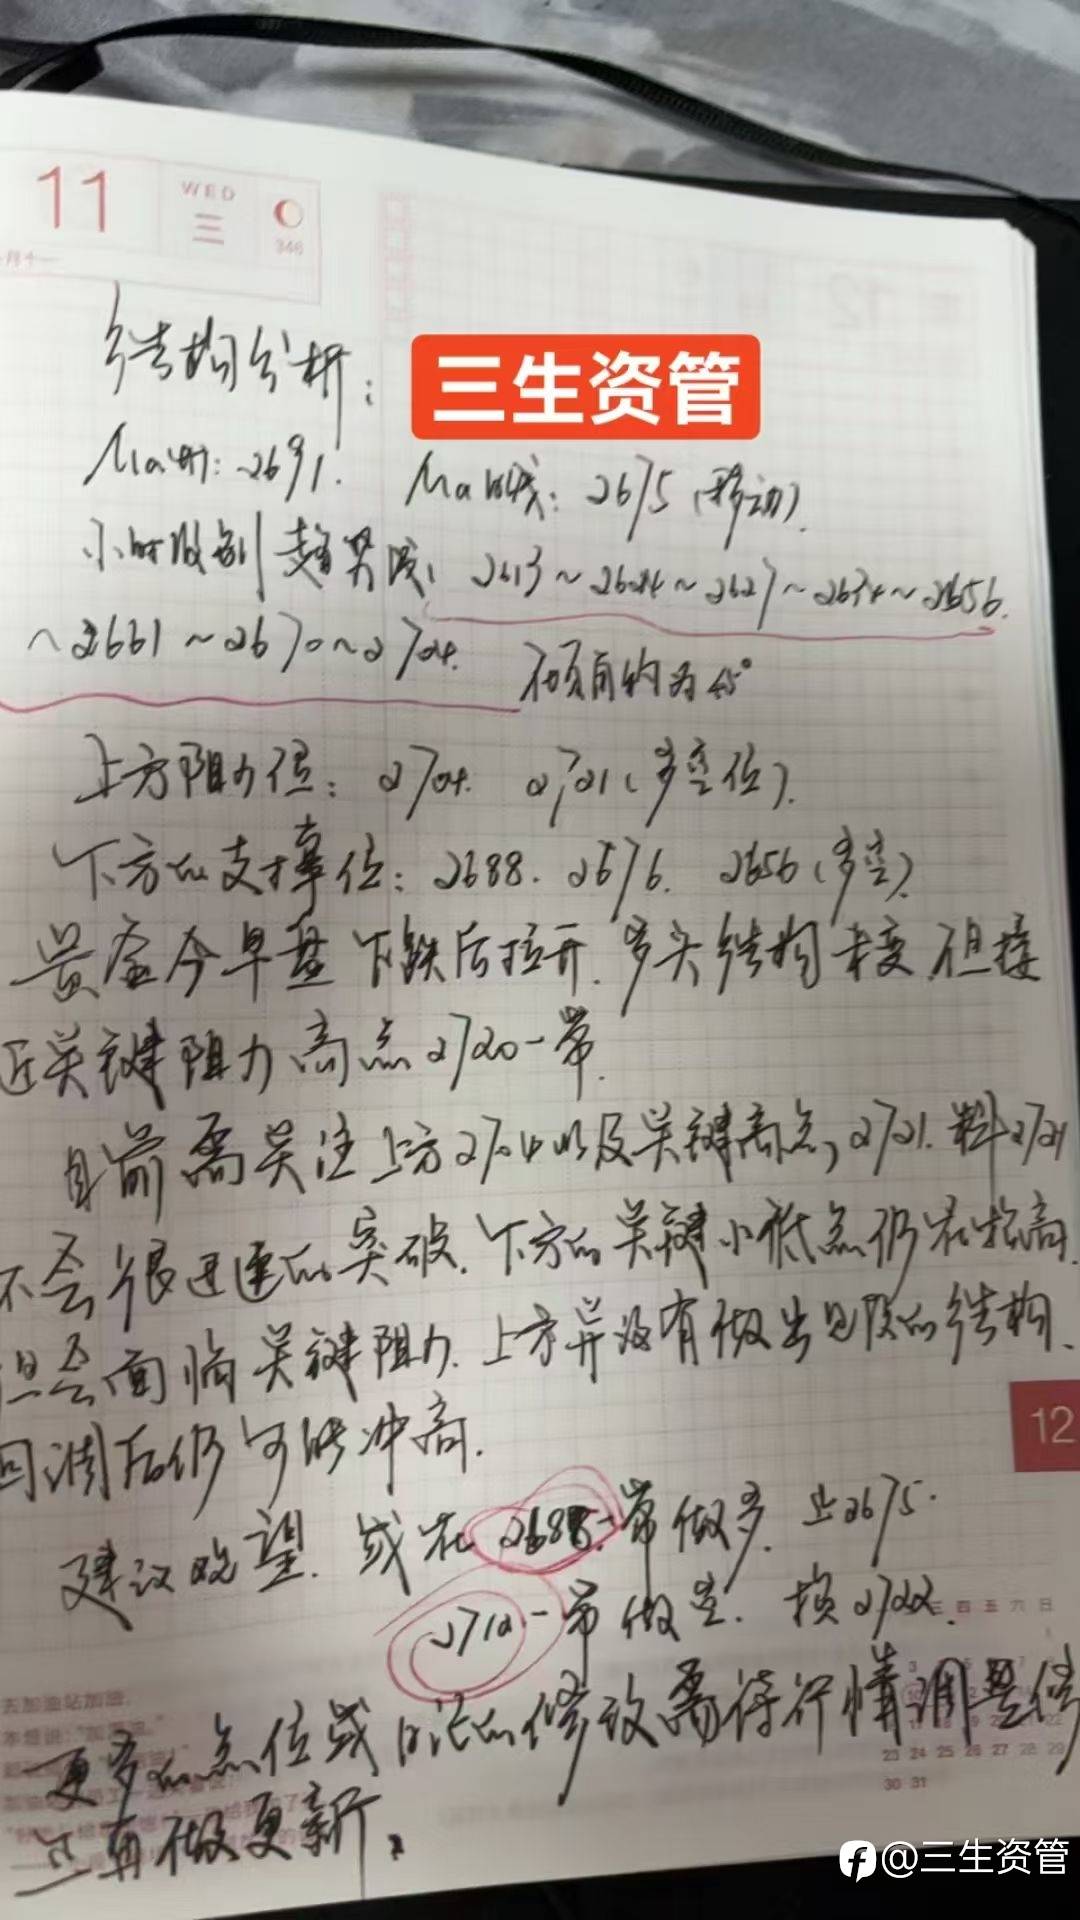 11
WED
三
346
结构分析：
三生资管
Ma时：2691.
Ma日线：2675（移动）.
小时级别趋势段：2613～2624～2627～2634～2656.
～2661～2670～2704. 倾角约为45°
上方阻力位：2704. 2721（多空位）.
下方的支撑位：2688. 2676. 2656（多空）.
黄金今早盘下跌后拉升. 多头结构未变 但接
近关键阻力高点2720一带.
目前需关注上方2704以及关键高点，2721. 料2721
不会很迅速的突破. 下方的关键小低点仍在抬高.
但会面临关键阻力. 上方并没有做出见顶的结构.
回调后仍可能冲高.
12
建议观望. 或在2685一带做多. 止2675.
2712一带做空. 损2722.
三 四 五 六 日
更多的点位或日内的修改需待行情调整修
正再做更新.
去加油站加油.
23 24 25 26 27 28 29
30 31
@三生资管